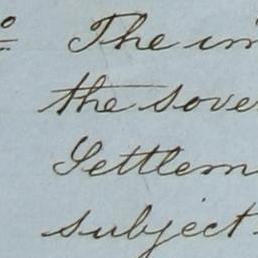 º The im
the sove
Settlem
subject